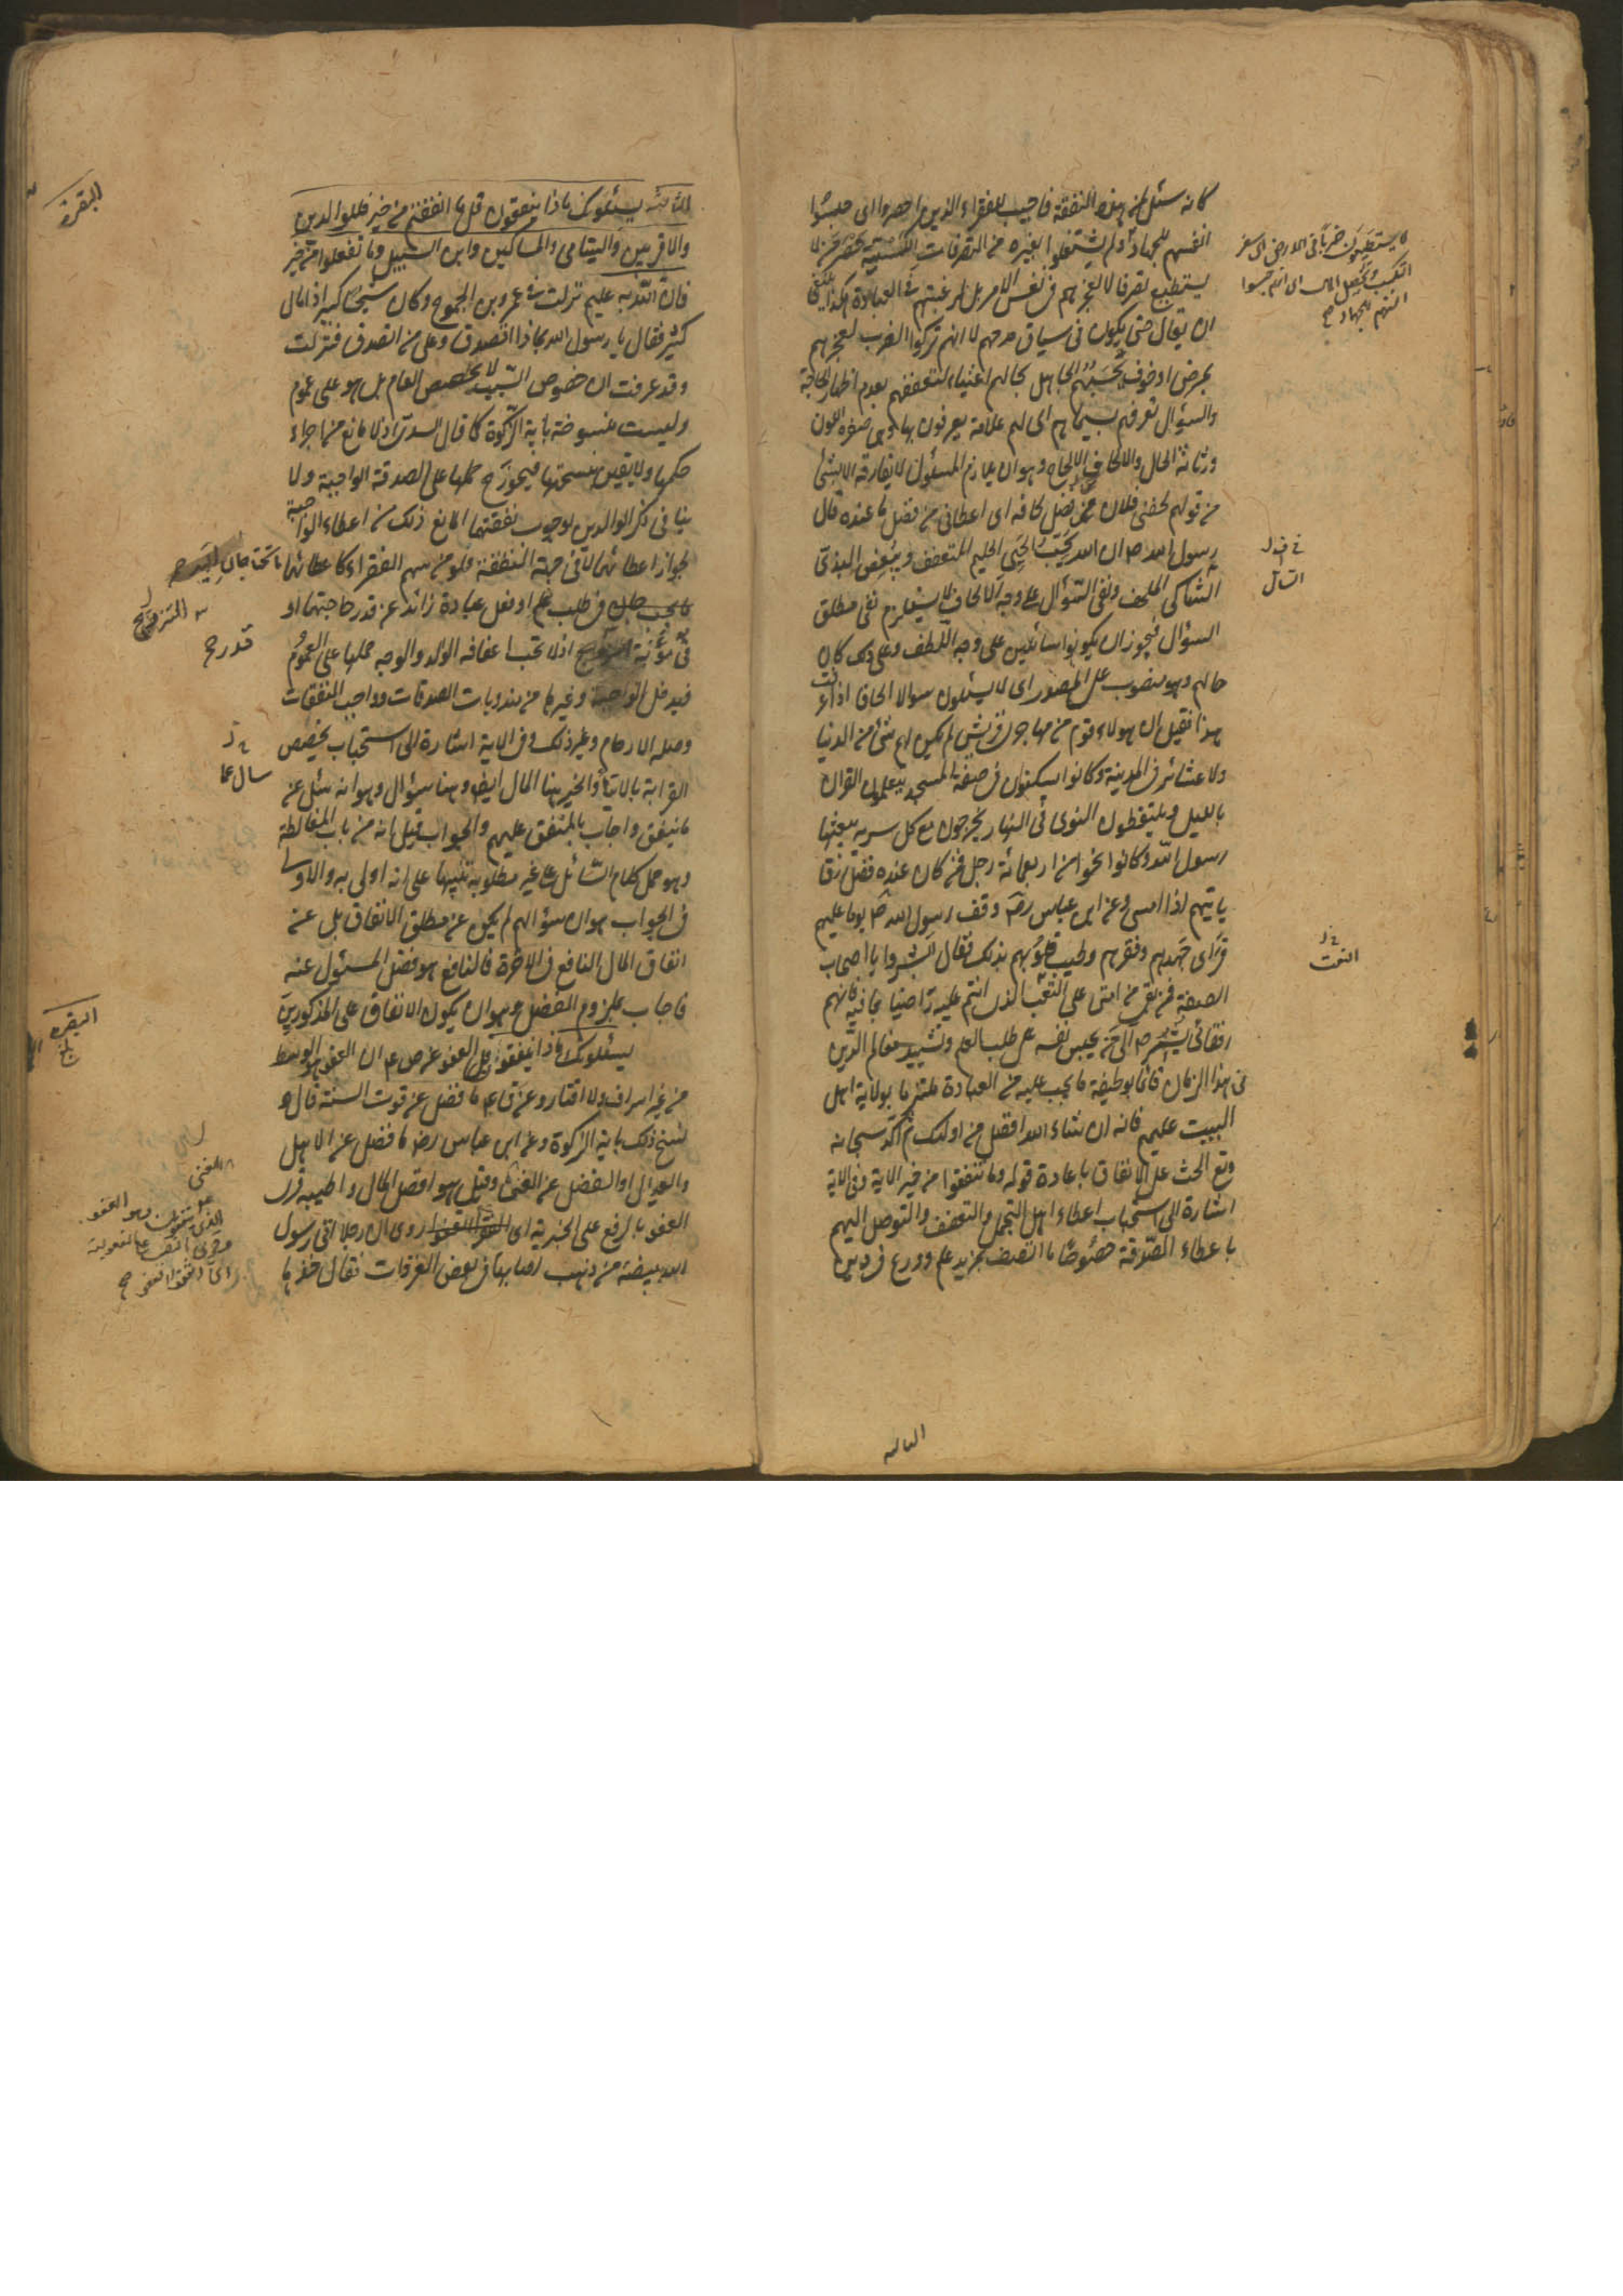 كانه سئل لمن هذه النفقة فاجيب للفقراء الذين احصروا اى حبسوا
انفسهم للجهاد او لم يشتغلوا بغيره من التصرفات الكسبية
يستطيع تصرفا لا لعجزهم فى نفس الامر بل لرغبتهم فى العبادة هكذا ينبغى
ان يقال حتى يكون فى سياق مدحهم لا انهم تركوا الضرب لعجزهم
بمرض او خوف يحسبهم الجاهل بحالهم اغنياء لتعففهم بعدم اظهار الحاجة
والسؤال تعرفهم بسيماهم اى لهم علامة يعرفون بها وهى صفرة اللون
ورثاثة الحال والالحاف الالحاح وهو ان يلازم المسئول لا يفارقه الا بشئ
من قولهم لحفنى فلان من فضل لحافه اى اعطانى من فضل ما عنده قال
رسول الله ص ان الله يحب الحيى الحليم المتعفف ويبغض البذى
الشاكى الملحف ونفى السؤال على وجه الالحاف لا يستلزم نفى مطلق
السؤال فيجوز ان يكونوا سائلين على وجه التلطف وعلى ذلك كان
حالهم وهو منصوب على المصدر اى لا يسئلون سؤالا الحافا اذا عرفت
هذا فقيل ان هولاء قوم من مهاجرى قريش لم يكن لهم شئ من الدنيا
ولا عشائر فى المدينة وكانوا يسكنون فى صفة المسجد يتعلمون القران
بالليل ويلتقطون النوى فى النهار يخرجون مع كل سرية يبعثها
رسول الله وكانوا نحوا من اربعمائة رجل فمن كان عنده فضل رزق
ياتيهم اذا امسى وعن ابن عباس رض وقف رسول الله ص يوما عليهم
فراى جهدهم وفقرهم وطيب قلوبهم بذلك فقال ابشروا يا اصحاب
الصفة فمن بقى من امتى على التعب الذى انتم عليه راضيا بما فيه فانهم
رفقائى يشير ص الى من يحبس نفسه على طلب العلم وتشييد معالم الدين
فى هذا الزمان قائما بوظيفة ما يجب عليه من العبادة ملتزما بولاية اهل
البيت عليهم فانه ان شاء الله افضل من اولئك ثم اكد سبحانه
وقع الحث على الانفاق باعادة قوله وما تنفقوا من خير الاية وفى الاية
اشارة الى استحباب اعطاء اهل التجمل والتعفف والتوصل اليهم
باعطاء الصدقة خصوصا ما اتصف بمزيد علم وورع فى دين
لا يستطيعون ضربا فى الارض اى سفر
التكسب وتحصيل المال اى انهم حبسوا
انفسهم للجهاد صح
السائل
التعب
الثالثة
البقرة
الثالثة يسئلونك ماذا ينفقون قل ما انفقتم من خير فللوالدين
والاقربين واليتامى والمساكين وابن السبيل وما تفعلوا من خير
فان الله به عليم نزلت فى عمرو بن الجموح وكان شيخا كبيرا ذا مال
كثير فقال يا رسول الله بماذا اتصدق وعلى من اتصدق فنزلت
وقد عرفت ان خصوص السبب لا يخصص العام بل هو على عموم
وليست منسوخة باية الزكوة كما قال السدى اذ لا مانع من اجراء
حكمها ولا يقين بنسختها فيجوز ح حملها على الصدقة الواجبة ولا
ينافى ذكر الوالدين لوجوب نفقتهما المانع ذلك من اعطاء الواجبة
لجواز اعطائهما لا فى جهة النفقة فلو من سهم الفقراء كاعطائهما ما يحتاجان اليه
فى طلب علم او فعل عبادة زائد عن قدر حاجتهما او
فى مؤنة التزويج اذ لا تجب اعفافه الولد والوجه حملها على العموم
فيدخل الواجبة وغيرها من مندوبات الصدقات وواجب النفقات
وصلة الارحام وغير ذلك وفى الاية اشارة الى استحباب تخصيص
القرابة بالايتاء والخير هنا المال ايض وهنا سؤال وهو انه سئل عن
ما ينفق واجاب بالمنفق عليهم والجواب قيل انه من باب المغالطة
وهو حمل كلام السائل على غير مطلوبه تنبيها على انه اولى به والاولى
فى الجواب هو ان سؤالهم لم يكن عن مطلق الانفاق بل عن
انفاق المال النافع فى الاخرة فالنافع هو فصل المسئول عنه
فاجاب بملزوم الفصل وهو ان يكون الانفاق على المذكورين
يسئلونك ماذا ينفقون قل العفو عن ص ع ان العفو هو الوسط
من غير اسراف ولا اقتار وعن ق ع ما فضل عن قوت السنة قال و
نسخ ذلك باية الزكوة وعن ابن عباس رض ما فضل عن الاهل
والعيال او الفضل عن الغنى وقيل هو افضل المال واطيبه قرئ
العفو بالرفع على الخبرية اى روى ان رجلا اتى رسول
الله ببيضة من ذهب اصابها فى بعض الغزوات فقال خذها
التزويج صح
قدر ح
سال عما
البقرة
الذى ينفقون هو العفو
وقرئ بالنصب على المفعولية
اى انفقوا العفو صح